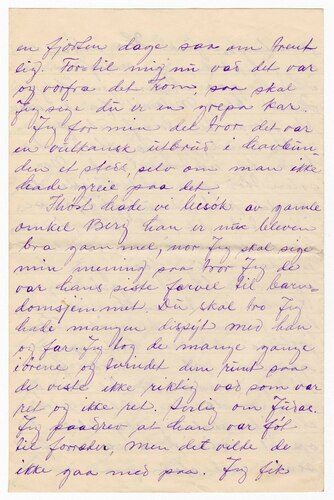 en fjorten dage saa om trent
lig. Fortil mig nu vad det var
og vorfra det kom, saa skal
Jeg sige du er en grepa kar.
Jeg for min del tror det var
en vulkansk utbrud i havbun
den et sted, selv om man ikke
hade greie paa det.
hade vi besøk av gamle
onkel Berg han er nu bleven
bra gammel, nor Jeg skal sige
min mening saa tror Jeg de
var hans siste farvel til barn
domsjemmet. Du skal tro Jeg
hade mangen dispyt med han
og far. Jeg tog de mange gange
i ørene og svindet dem runt saa
de viste ikke riktig vad som var
ret og ikke ret. Serlig om Judas.
Jeg paastod at han var føl
til forræder, men det vilde de
ikke gaa med paa. Jeg fik